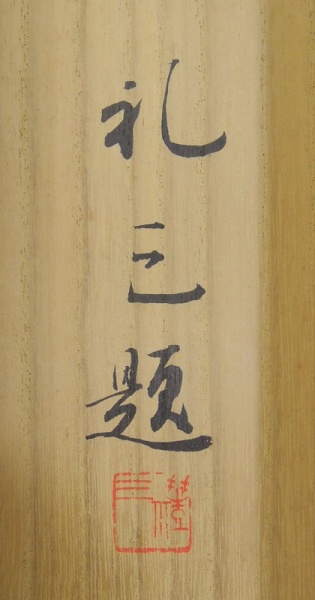 礼三題